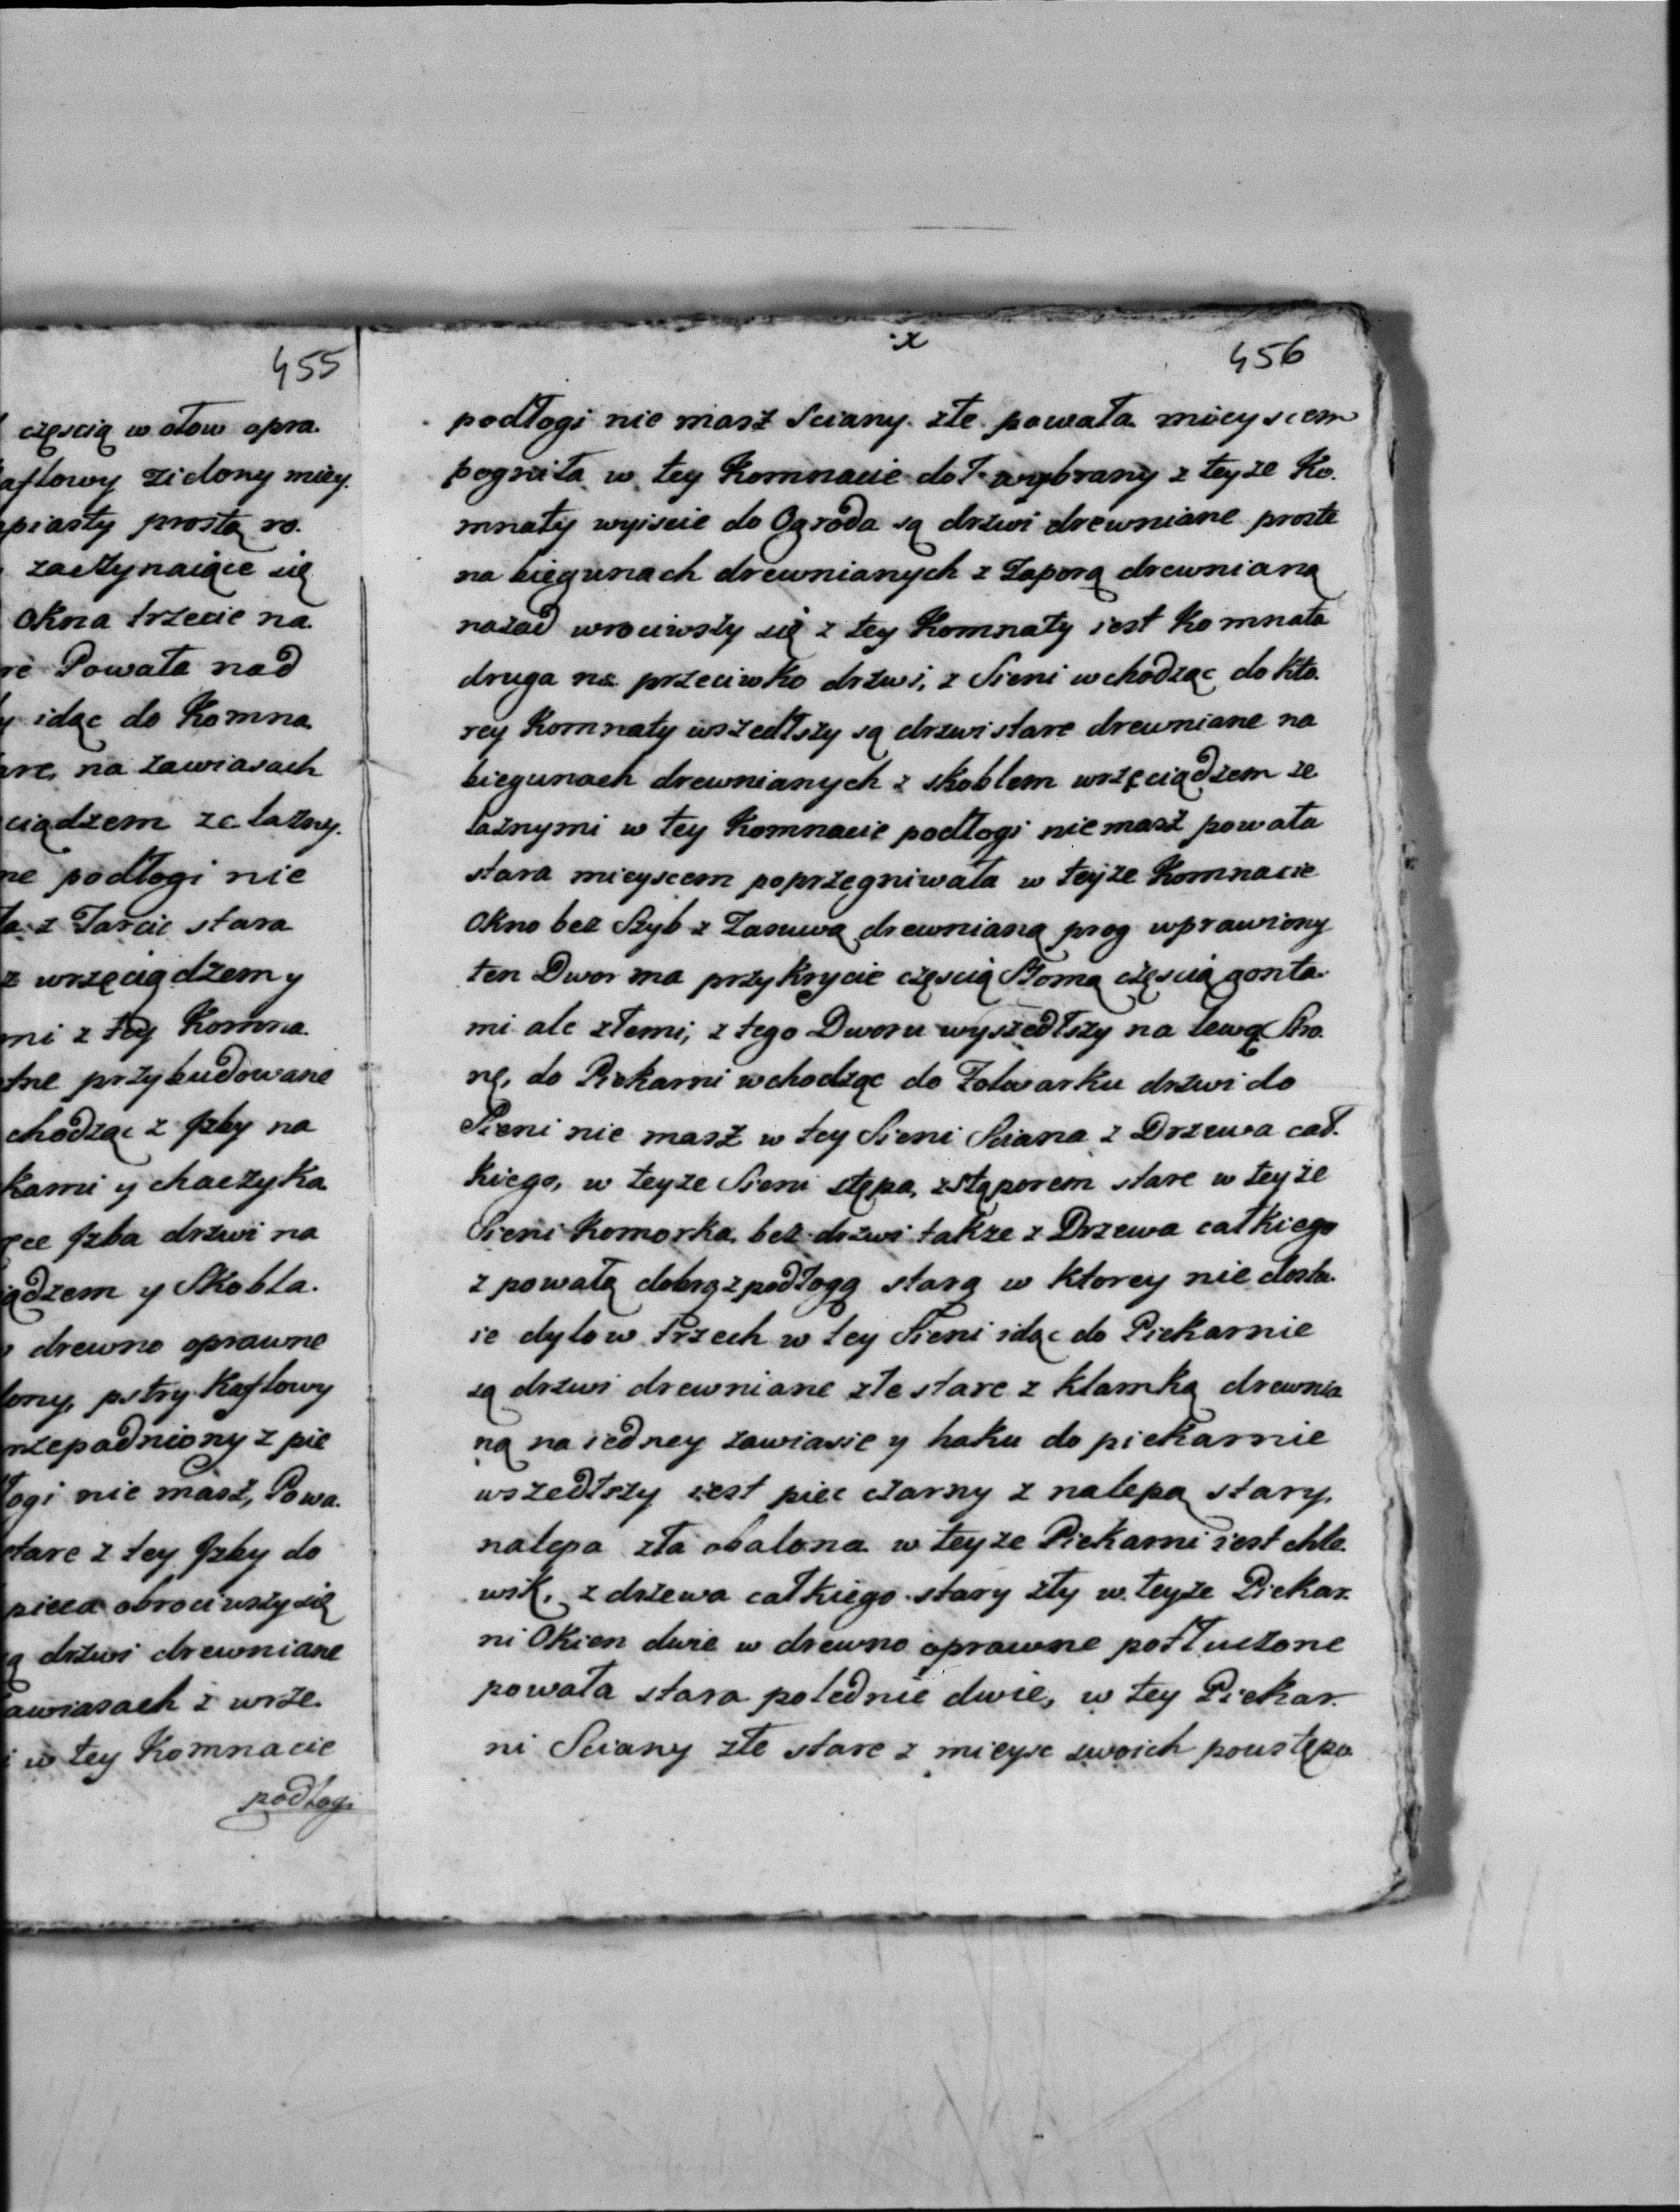 455
częscią w ołow opra.
aflowy zielony miey.
piasty prostą ro.
zaczynaiące się
Okna trzecie na
re Powała nad
y idąc do Komna
are, na zawiasach
ciądzem zelazny.
ne podłogi nie
ła z Tarcic stara
z wrzęciądzem y
mi z tey Komna.
tne przybudowane
chodząc z Jzby na
kami y chaczyka
ęce Jzba drzwi na
ądzem y Skobla.
drewno oprawne
lony, pstry Kaflowy
rzepadniony z pie
łogi nie masz, Powa.
stare z tey Jzby do
pieca obrociwszy się
ą drzwi drewniane
awiasach z wrze.
i w tey Komnacie
podłogi
x
456
podłogi nie masz Sciany złe powała mieyscem
pogniła w tey Komnacie doł wybrany z teyze Ko.
mnaty wyiscie do Ogroda są drzwi drewniane proste
na biegunach drewnianych z Zaporą drewnianą
nazad wrociwszy się z tey Komnaty iest Komnata
druga na przeciwko drzwi, z Sieni wchodząc do kto.
rey Komnaty wszedłszy są drzwi stare drewniane na
biegunach drewnianych z skoblem wrzęciądzem ze
laznymi w tey Komnacie podłogi nie masz powała
stara mieyscem poprzegniwała w teyze Komnacie
Okno bez Szyb z Zasuwą drewnianą prog wprawiony
ten Dwor ma przykrycie częscią Słomą częscią gonta.
mi ale złemi, z tego Dworu wyszedłszy na lewą Stro.
nę, do Piekarni wchodząc do Folwarku drzwi do
Sieni nie masz w tey Sieni Sciana z Drzewa cał.
kiego, w teyze Sieni stępa, z Stąporem stare w teyze
Sieni Komorka bez drzwi takze z Drzewa całkiego
z powałą dobrą z podłogą starą w Ktorey nie dosta.
ie dylow Trzech w tey Sieni idąc do Piekarnie
są drzwi drewniane złe stare z klamką drewnia
ną na iedney zawiasie y haku do piekarnie
wszedłszy iest piec czarny z nalepą stary,
nalepa zła obalona w teyze Piekarni iest chle.
wik, z drzewa całkiego stary zły w teyze Piekar.
ni Okien dwie w drewno oprawne potłuczone
powała stara polednie dwie, w tey Piekar.
ni Sciany złe stare z mieysc swoich poustępo